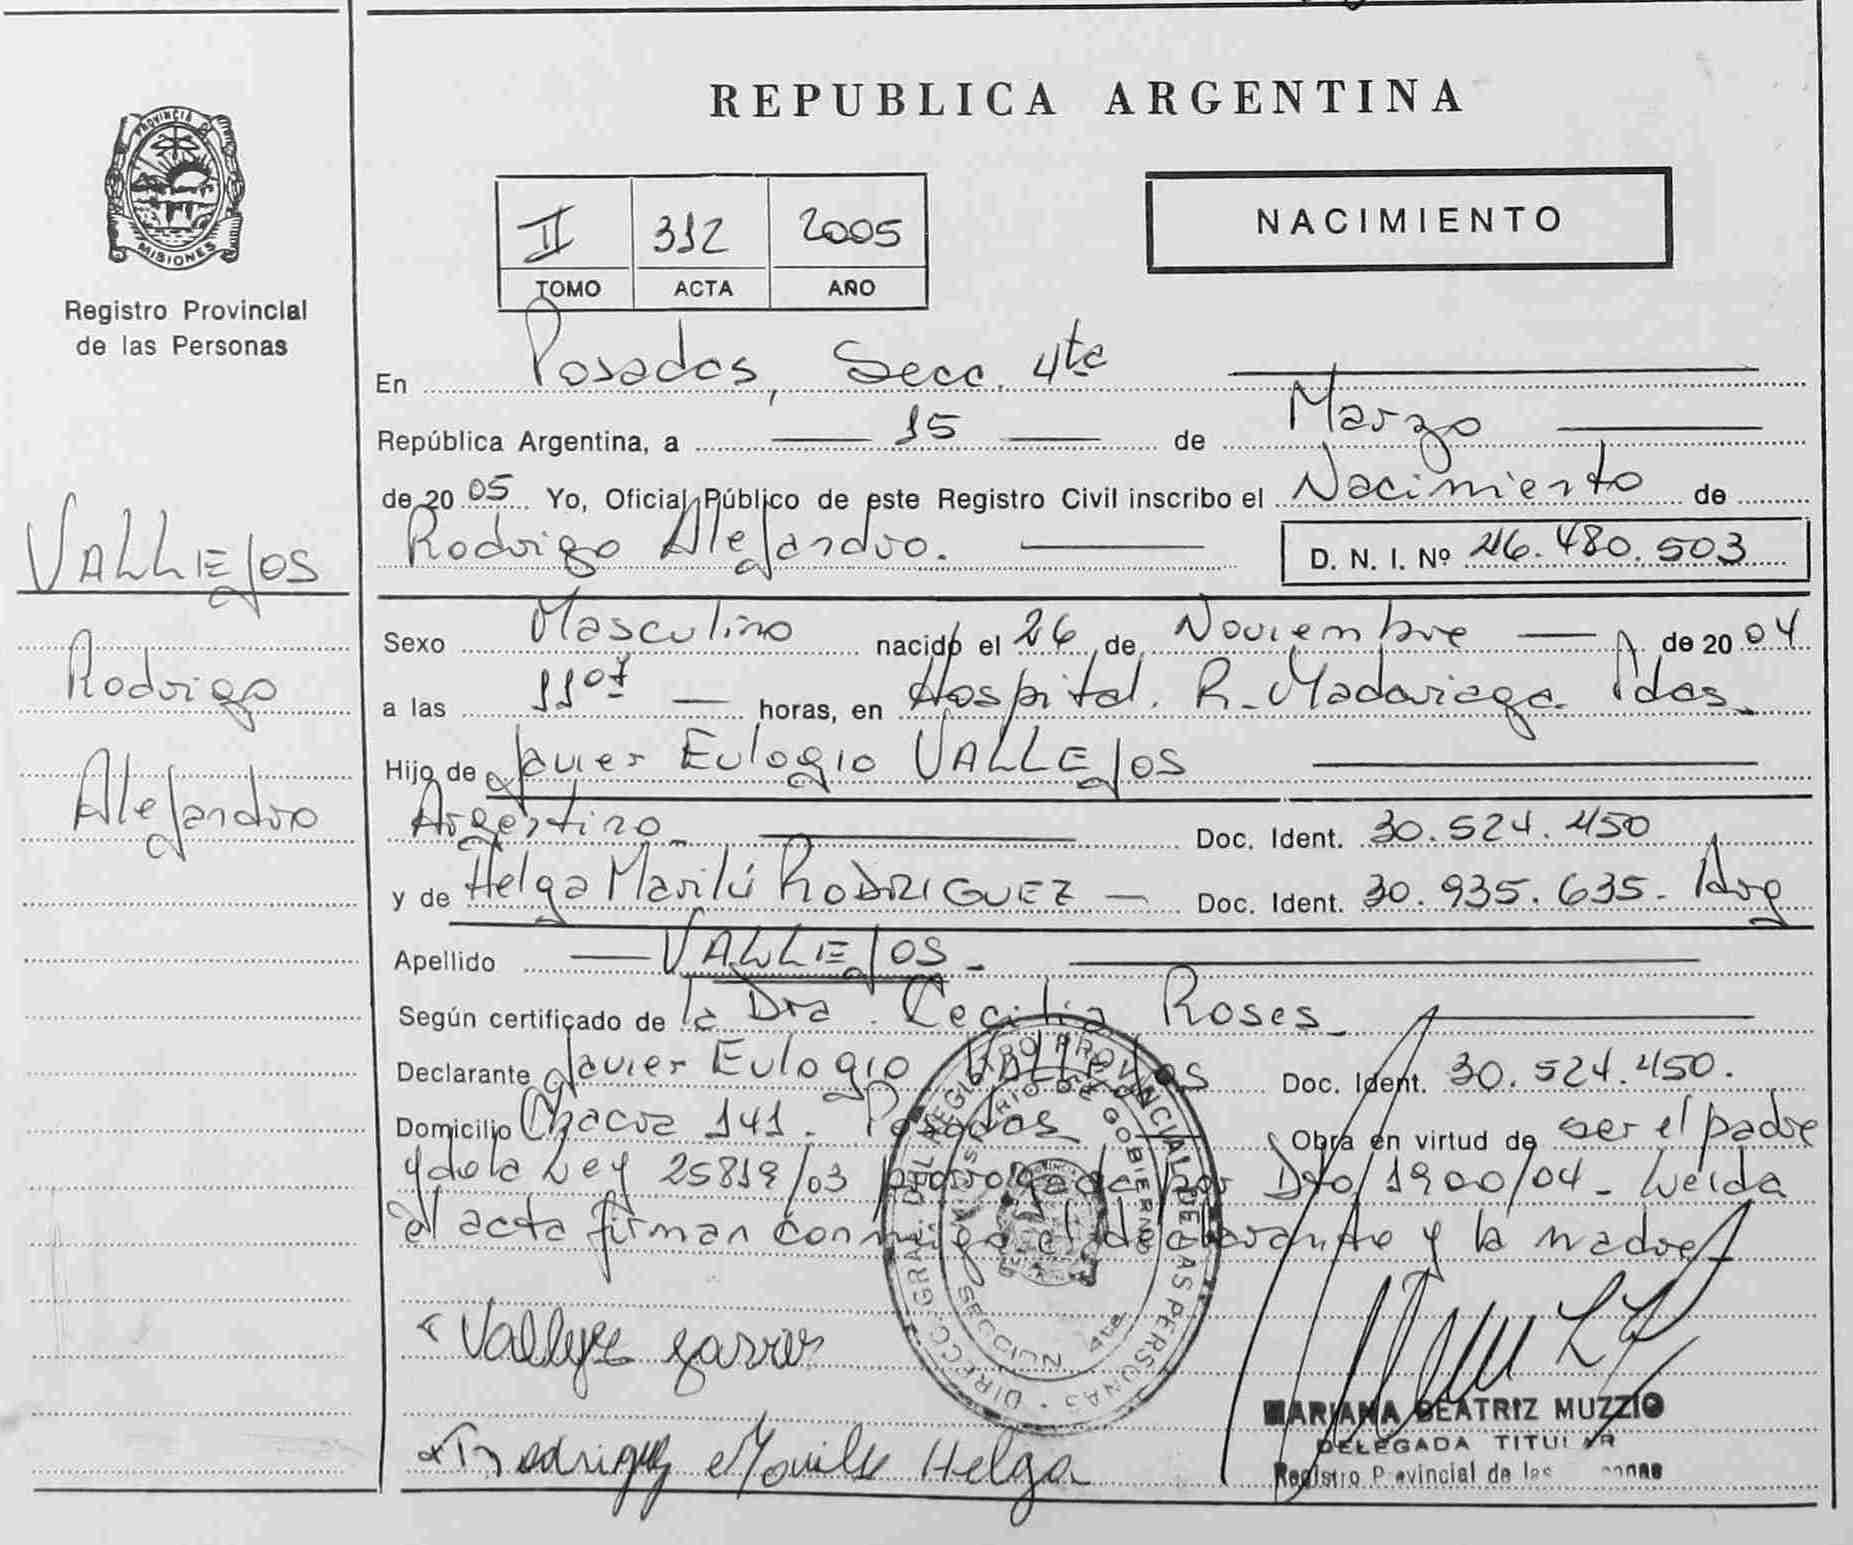 REPUBLICA ARGENTINA
PROVINCIA D
MISIONES
Registro Provincial
de las Personas
NACIMIENTO
II 312 2005
TOMO ACTA AÑO
En Posadas, Secc. 4ta
República Argentina, a 15 de Marzo
de 20 05 Yo, Oficial Público de este Registro Civil inscribo el Nacimiento de
Rodrigo Alejandro. D. N. I. Nº 46.480.503
VALLEJOS
Rodrigo
Alejandro
Sexo Masculino nacido el 26 de Noviembre de 20 04
a las 11 horas, en Hospital. R. Madariaga Pdas.
Hijo de Javier Eulogio VALLEJOS
Argentino Doc. Ident. 30.524.450
y de Helga Marilú RODRIGUEZ Doc. Ident. 30.935.635. Arg
Apellido VALLEJOS
Según certificado de la Dra. Cecilia Roses
Declarante Javier Eulogio VALLEJOS Doc. Ident. 30.524.450.
Domicilio Chacra 141. Posadas Obra en virtud de ser el padre
y de la Ley 25819/03 prorrogada por Dto 1900/04 - Leída
el acta firman conmigo el declarante y la madre
DIRECC. GRAL. DEL REGISTRO PROVINCIAL DE LAS PERSONAS
MINISTERIO DE GOBIERNO
SECCION 4ta.
Rodriguez Helga
MARIANA BEATRIZ MUZZIO
DELEGADA TITULAR
Registro Provincial de las